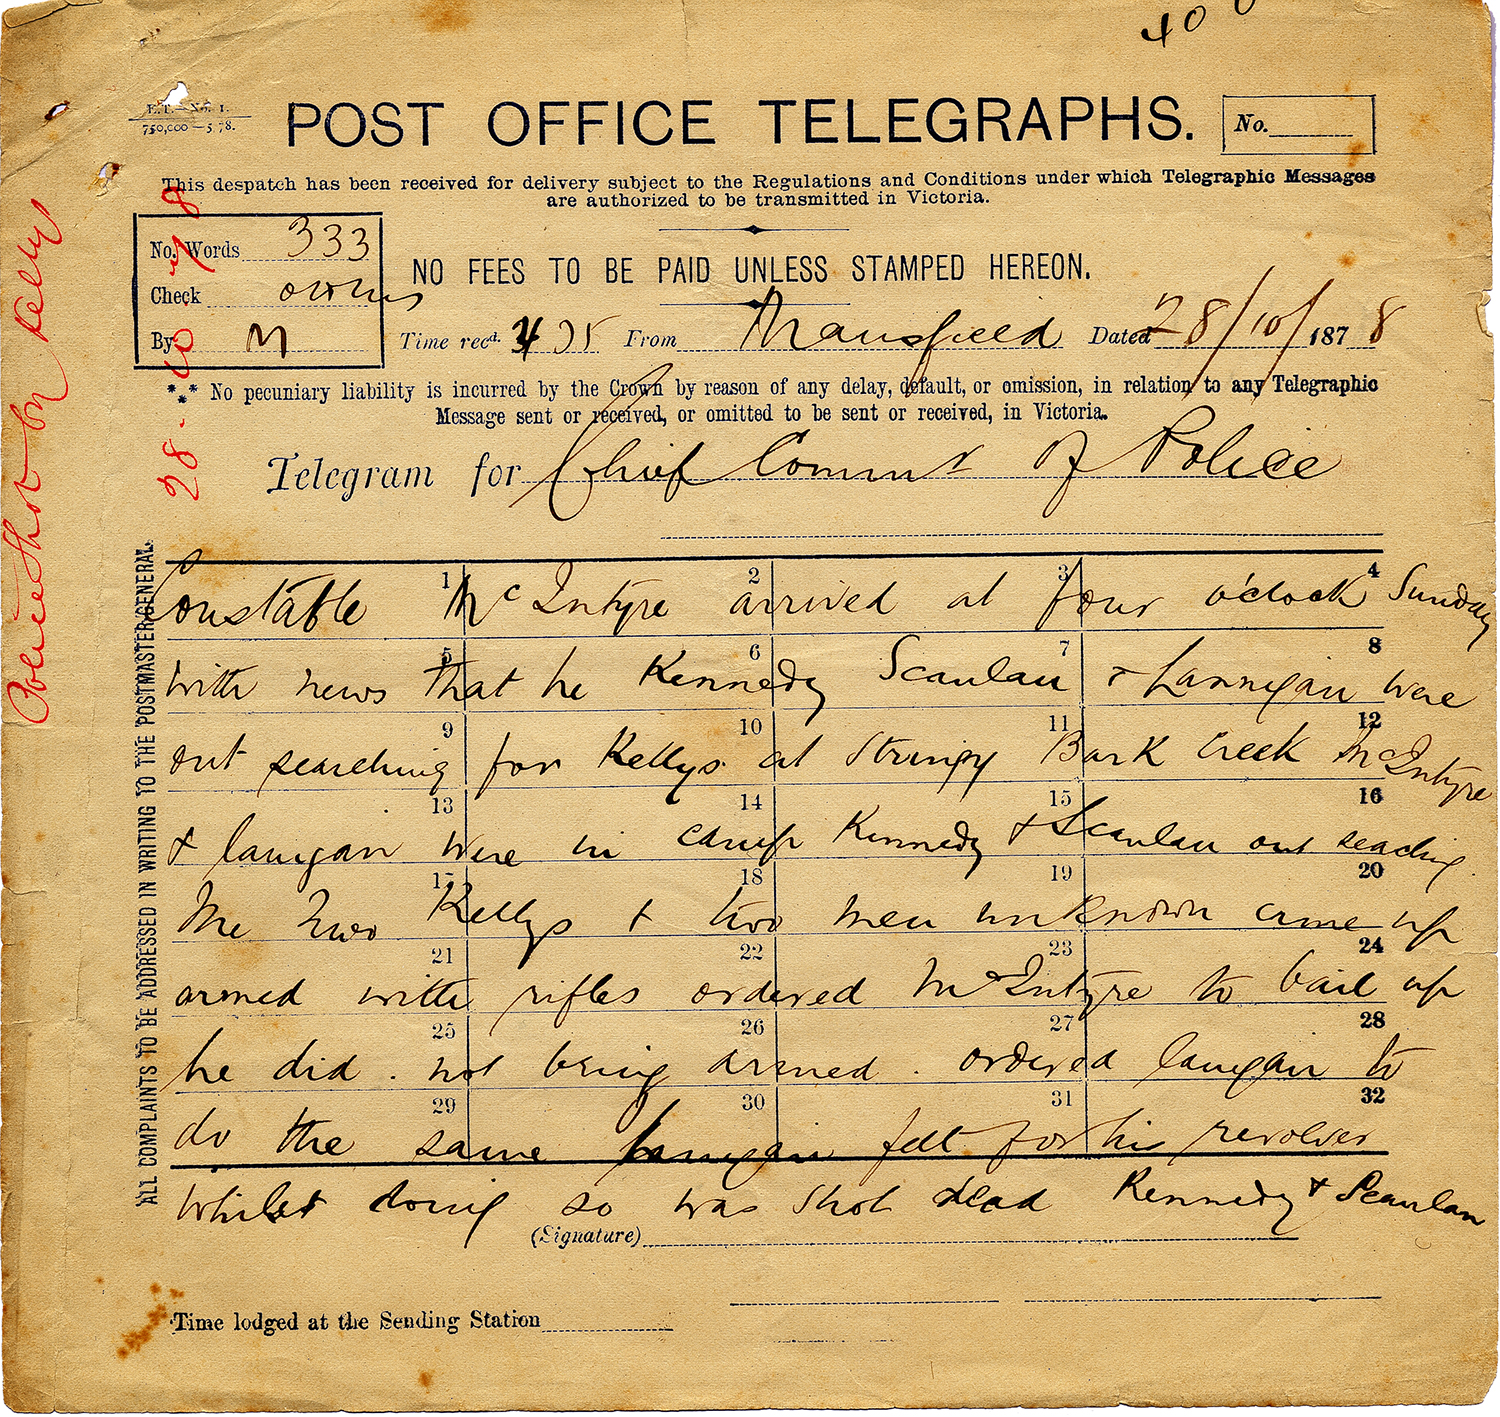 400
E.T.—No. 1.
750,000—5.78.
POST OFFICE TELEGRAPHS.
No.
This despatch has been received for delivery subject to the Regulations and Conditions under which Telegraphic Messages
are authorized to be transmitted in Victoria.
No. Words 333
Check
By M
NO FEES TO BE PAID UNLESS STAMPED HEREON.
Time recd. 4 35 From Mansfield Dated 28/10/1878
*** No pecuniary liability is incurred by the Crown by reason of any delay, default, or omission, in relation to any Telegraphic
Message sent or received, or omitted to be sent or received, in Victoria.
Telegram for Chief Commr of Police
Constable McIntyre arrived at four o'clock Sunday
with news that he Kennedy Scanlan & Lannigan were
out searching for Kellys at Stringy Bark Creek McIntyre
& lanigan were in camp Kennedy & Scanlan out seaching.
The two Kellys & two men unknown came up
armed with rifles ordered McIntyre to bail up
he did. not being armed. ordered lanigan to
do the same lannigan felt for his revolver
whilst doing so was shot dead Kennedy & Scanlan
(Signature)
Time lodged at the Sending Station
1 2 3 4
5 6 7 8
9 10 11 12
13 14 15 16
17 18 19 20
21 22 23 24
25 26 27 28
29 30 31 32
ALL COMPLAINTS TO BE ADDRESSED IN WRITING TO THE POSTMASTER-GENERAL.
28-10-78
Police Shot by Kelly